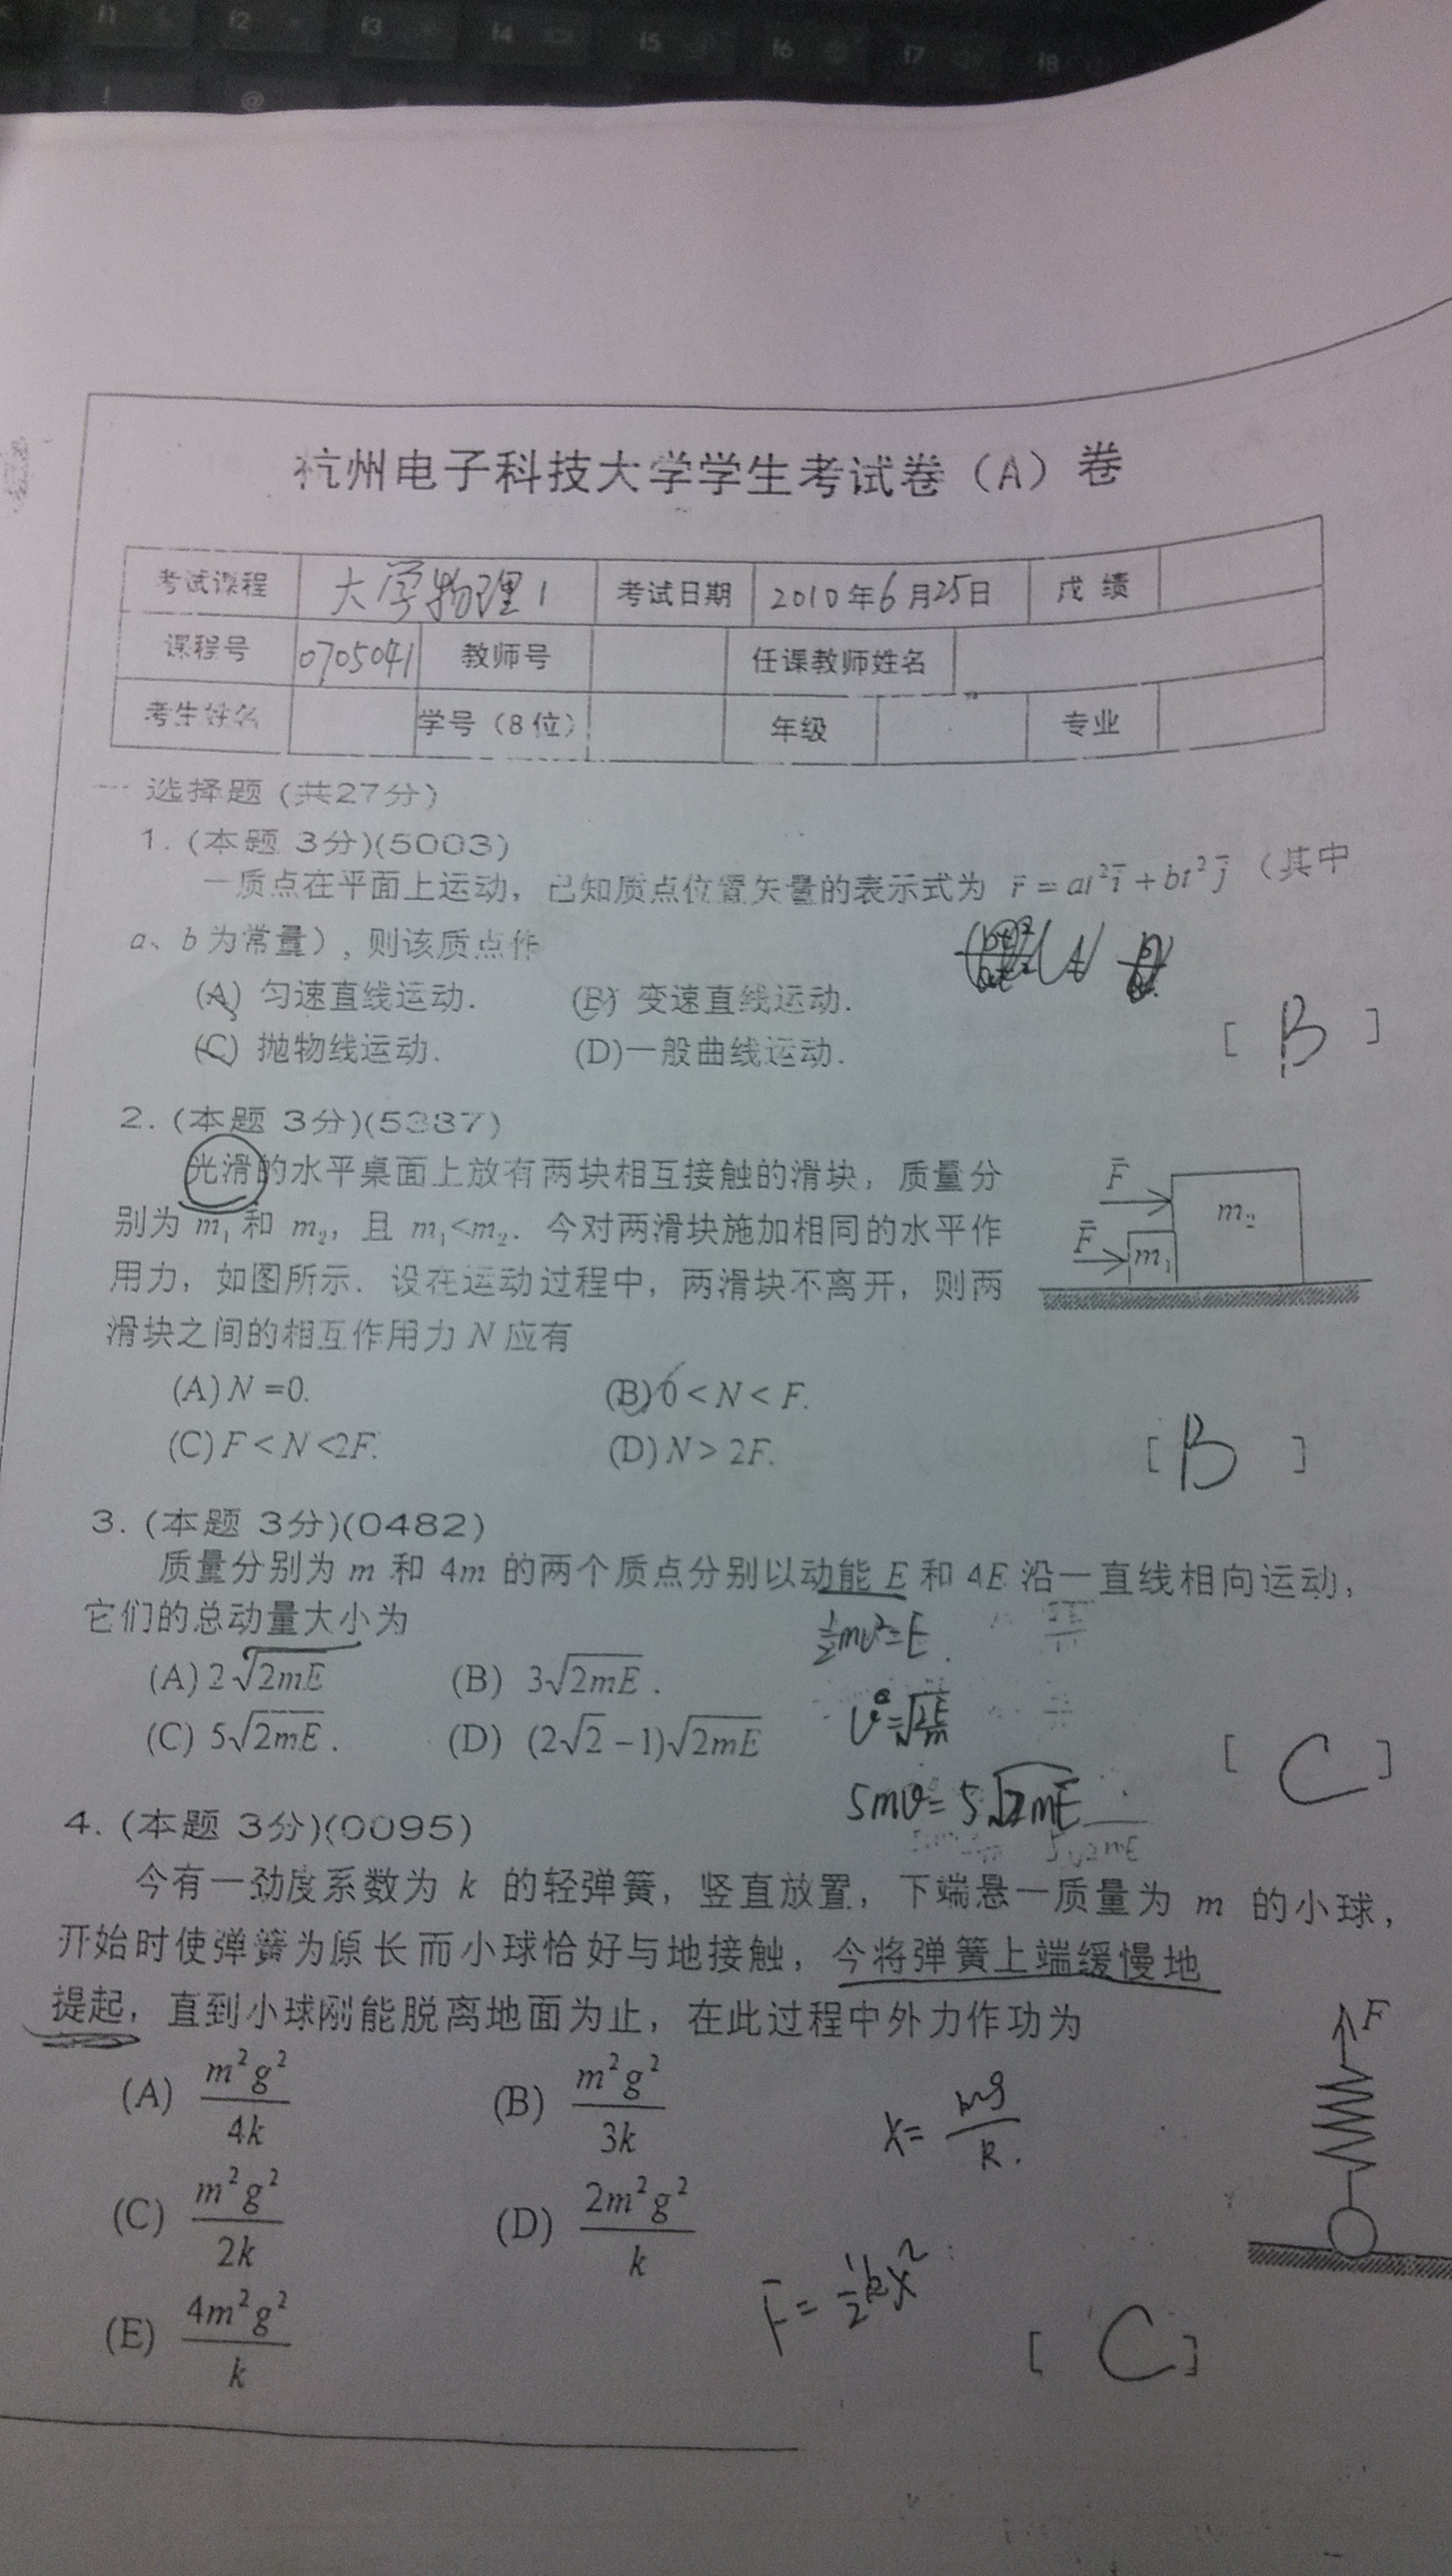 f1 f2 f3 f4 f5 f6 f7 f8
! @
杭州电子科技大学学生考试卷（A）卷
考试课程 大学物理1 考试日期 2010年6月25日 成绩
课程号 0705041 教师号 任课教师姓名
考生姓名 学号（8位） 年级 专业
一 选择题 (共27分)
1. (本题 3分)(5003)
一质点在平面上运动，已知质点位置矢量的表示式为 r̄ = at²ī + bt²j̄ （其中
a、b 为常量），则该质点作
(A) 匀速直线运动. (B) 变速直线运动.
(C) 抛物线运动. (D)一般曲线运动.
[ B ]
2. (本题 3分)(5387)
光滑的水平桌面上放有两块相互接触的滑块，质量分
别为 m₁ 和 m₂，且 m₁<m₂. 今对两滑块施加相同的水平作
用力，如图所示. 设在运动过程中，两滑块不离开，则两
滑块之间的相互作用力 N 应有
F̄ m₂
F̄ m₁
(A) N =0. (B) 0 < N < F.
(C) F < N <2F. (D) N > 2F.
[ B ]
3. (本题 3分)(0482)
质量分别为 m 和 4m 的两个质点分别以动能 E 和 4E 沿一直线相向运动，
它们的总动量大小为
½mv²=E.
(A) 2√2mE (B) 3√2mE .
(C) 5√2mE . (D) (2√2 −1)√2mE
v=√2E/m
[ C ]
5mv= 5√2mE
4. (本题 3分)(0095)
今有一劲度系数为 k 的轻弹簧，竖直放置，下端悬一质量为 m 的小球，
开始时使弹簧为原长而小球恰好与地接触，今将弹簧上端缓慢地
提起，直到小球刚能脱离地面为止，在此过程中外力作功为
F
(A) m²g²/4k (B) m²g²/3k
x= mg/k.
(C) m²g²/2k (D) 2m²g²/k
F = ½kx²
(E) 4m²g²/k
[ C ]